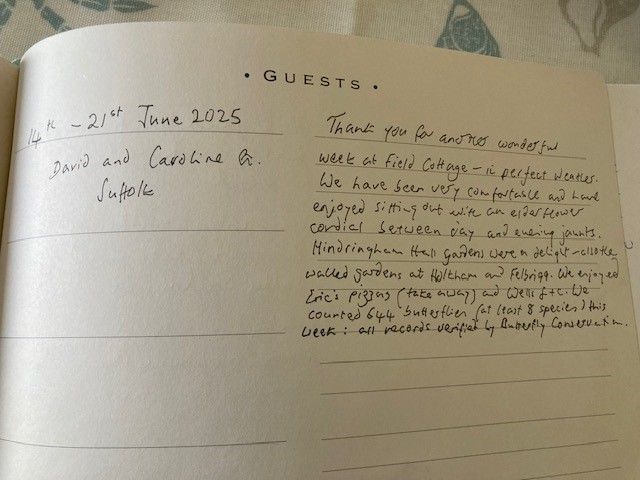 • GUESTS •
14th - 21st June 2025
David and Caroline G.
Suffolk
Thank you for another wonderful
week at Field Cottage - in perfect weather.
We have been very comfortable and have
enjoyed sitting out with an elderflower
cordial between day and evening jaunts.
Hindringham Hall gardens were a delight - also the
walled gardens at Holkham and Felbrigg. We enjoyed
Eric's pizzas (take away) and Wells f+c. We
counted 644 butterflies (at least 8 species) this
week: all records verified by Butterfly Conservation.